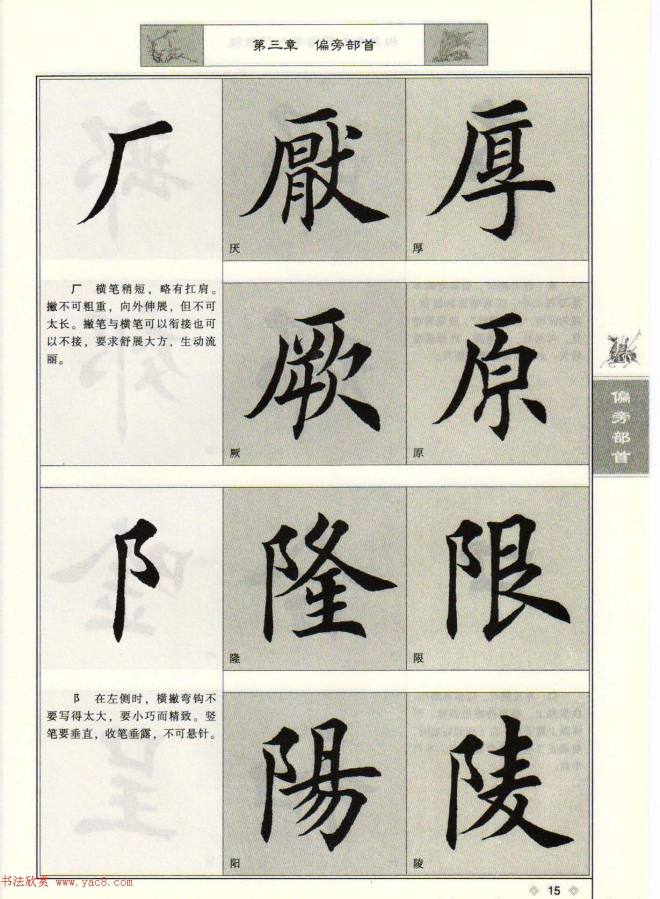 第三章 偏旁部首
厂 厭 厚
厌 厚
厂 横笔稍短，略有扛肩。
撇不可粗重，向外伸展，但不可
太长。撇笔与横笔可以衔接也可
以不接，要求舒展大方，生动流
丽。
厥 原
厥 原
偏旁部首
阝 隆 限
隆 限
阝 在左侧时，横撇弯钩不
要写得太大，要小巧而精致。竖
笔要垂直，收笔垂露，不可悬针。
陽 陵
阳 陵
书法欣赏 www.yac8.com
15